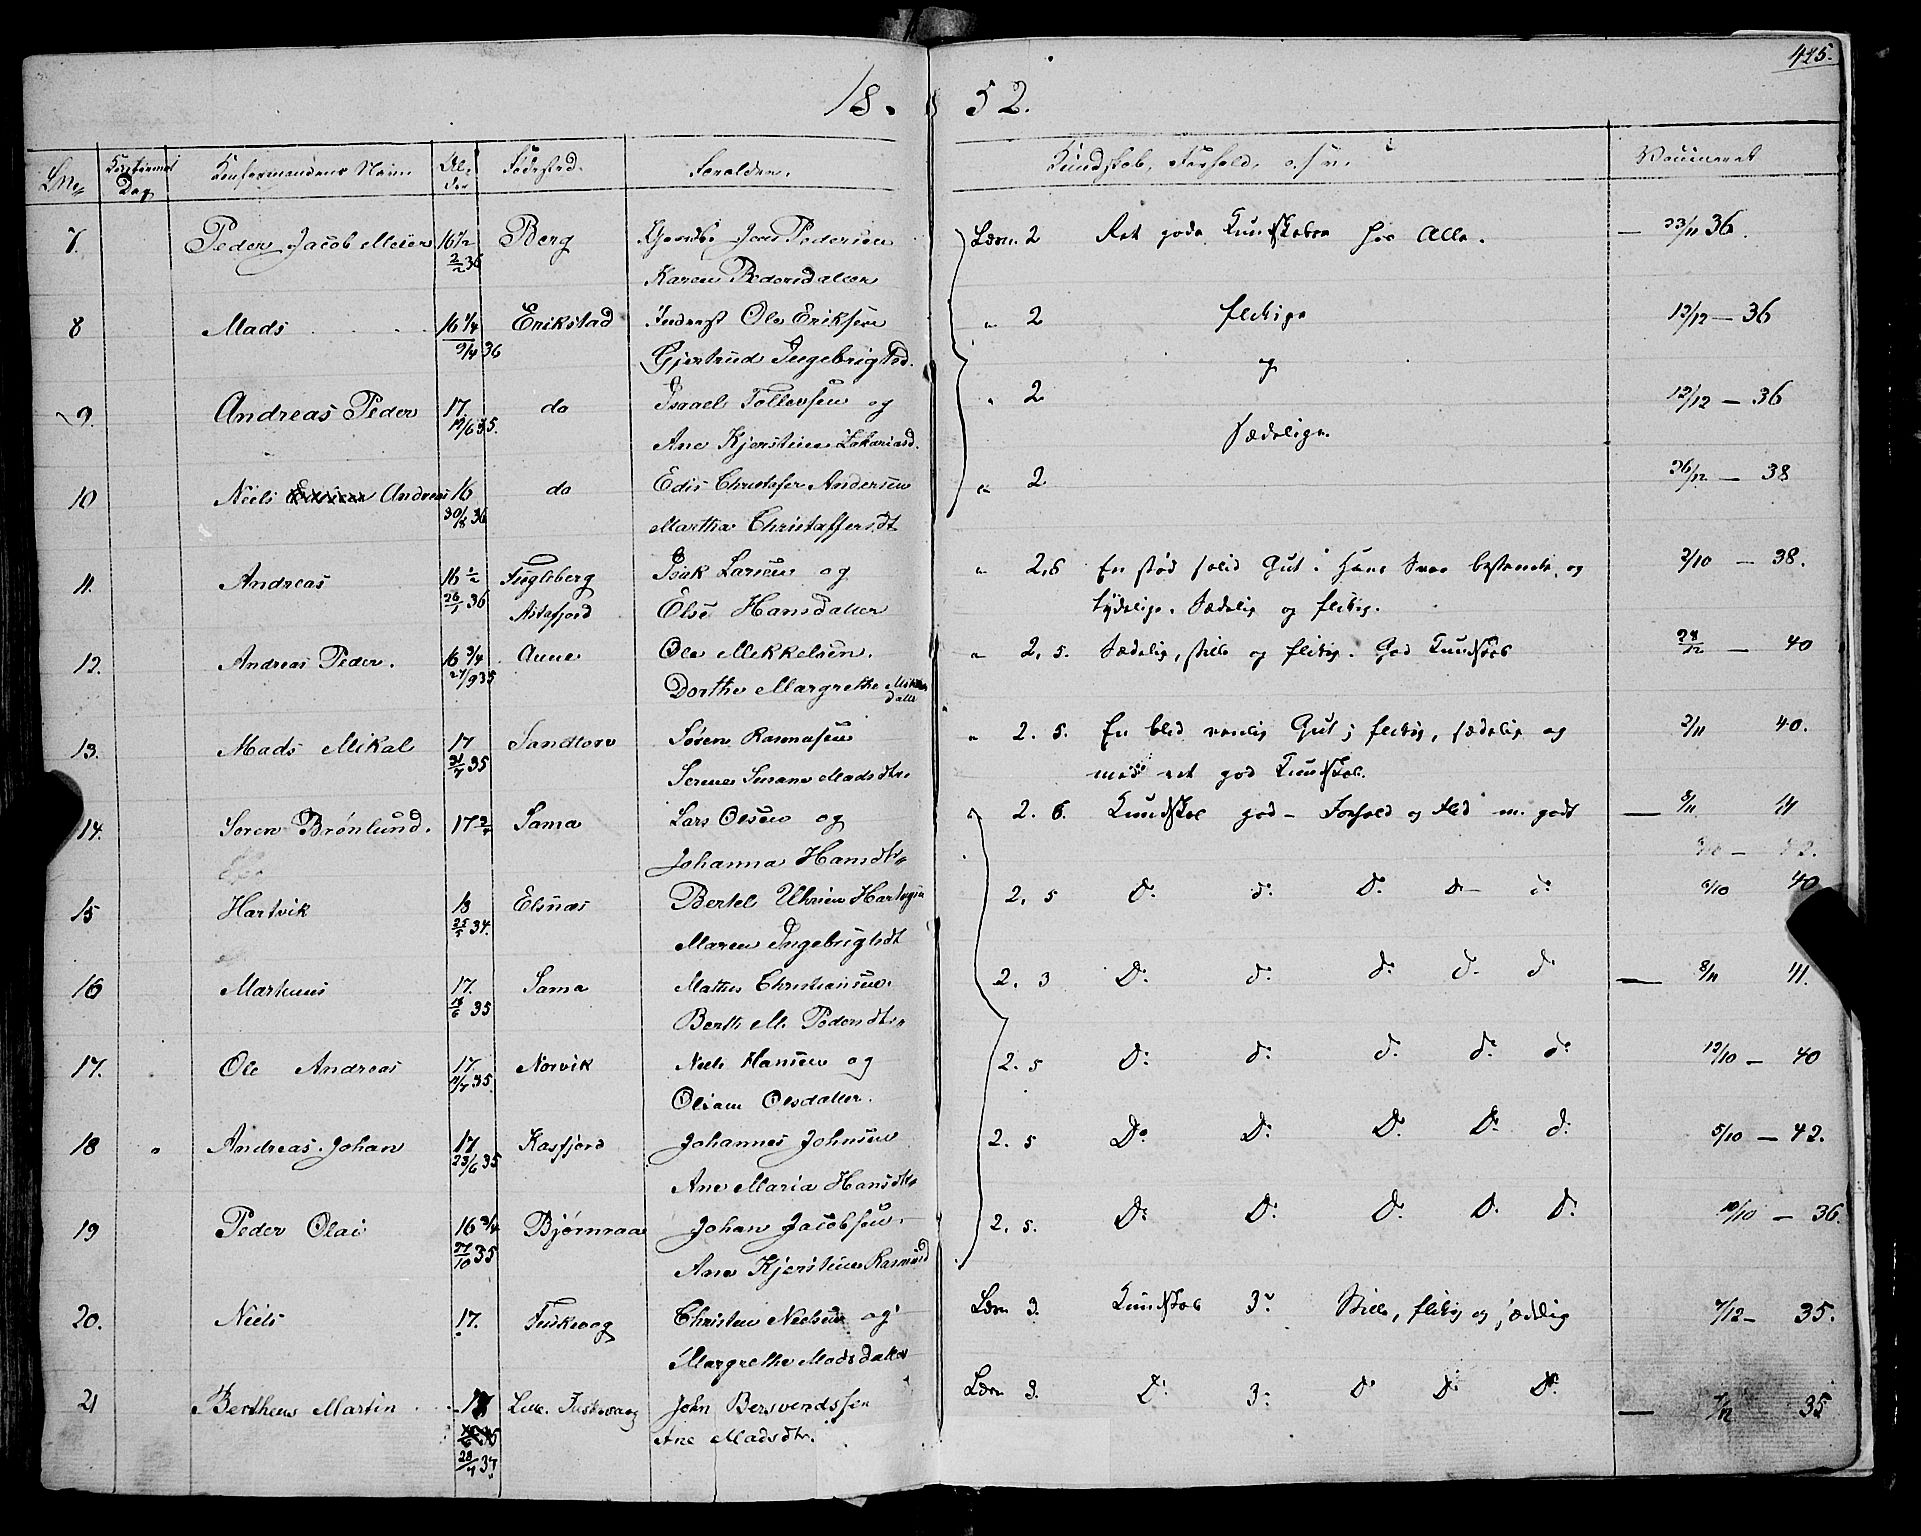 18. 52.
415.
Lne Konfirmat. Dag Konfirmandens Navn. Alder Fødested. Forældre. Kundskab, Forhold, o.s.v. Vaccineret
7. Peder Jacob Meier 16 1/2 Berg Jens Pedersen Læsn. 2 Ret gode Kundskaber hos Alle. — 23/11 36.
2/2 36 Karen Pedersdatter
8 Mads 16 1/4 Erikstad Ole Eriksen " 2 flitige 12/12 — 36
9/4 36 Gjertrud Ingebrigtsd.
og
9. Andreas Peder 17. do Israel Tollevsen og " 2 12/12 — 36
12/6 35. Ane Kjerstine Zakariasd. sædelige.
10 Niels Andreas 16 do Edis Christofer Andersen " 2 26/12 — 38
30/8 36 Martha Christaffersdt
11. Andreas 16 1/2 Fugleberg Isak Larsen og " 2,6 En stød solid Gut; Hans Svar bestemte, og 2/10 — 38.
26/1 36 Astafjord Else Hansdatter tydelige. Sædelig og flitig.
12. Andreas Peder. 16 3/4 Aune Ole Mikkelsen. " 2, 5. Sædelig, stille og flitig. God Kundskab 28/12 — 40
27/9 35 Dorthe Margrethe
13. Mads Mikal 17 Sandtorv Søren Rasmusen " 2. 5. En blid venlig Gut; flitig, sædelig og 2/11 40.
31/7 35 Serine Susane Madsdtr. med ret god Kundskab.
14. Søren Brønlund. 17 2/4 Sama Lars Olsen og " 2. 6. Kundskab god — Forhold og Flid m. godt — 8/11 41
Johanna Hansdtr.
15 Hartvik 18 Elsnæs Bertel Ulrien 2. 5 D. d. D. D— d. 6/10 40
25/5 34. Maren Ingebrigtsdt
16 Markuus 17. Sama Mathis Christiansen. 2. 3 D. d. d. d. d. — 8/11 41.
18/6 35 Berth M. Pedersdtr.
17. Ole Andreas 17. Norvik Niels Hansen og 2. 5 D. d. d. d. d. 12/10 — 40
11/7 35. Olsdatter.
18 " Andreas Johan 17 Kasfjord Johannes Johnsen 2. 5 D. D. D. D. d. 5/10 — 42.
23/6 35 Ane Maria Hansdtr.
19 Peder Olai 16 3/4 Bjørnraa Johan Jacobsen. 2. 5. D. D. D. D. D. 10/10 — 36.
27/10 35 Ane Kjerstine Rasmusd
20. Niels 17. Fiskevog Christen Nielsen og Læsn 3. Kundskab 3. Stille, flitig og sædelig 7/12 — 35.
Margrethe Madsdatter
21 Bertheus Martin 17 Lille Fiskevaag John Bersvendsen Læsn 3. D. 3. D. D. D. — 7/12 35
28/7 37 Ane Madsdtr.